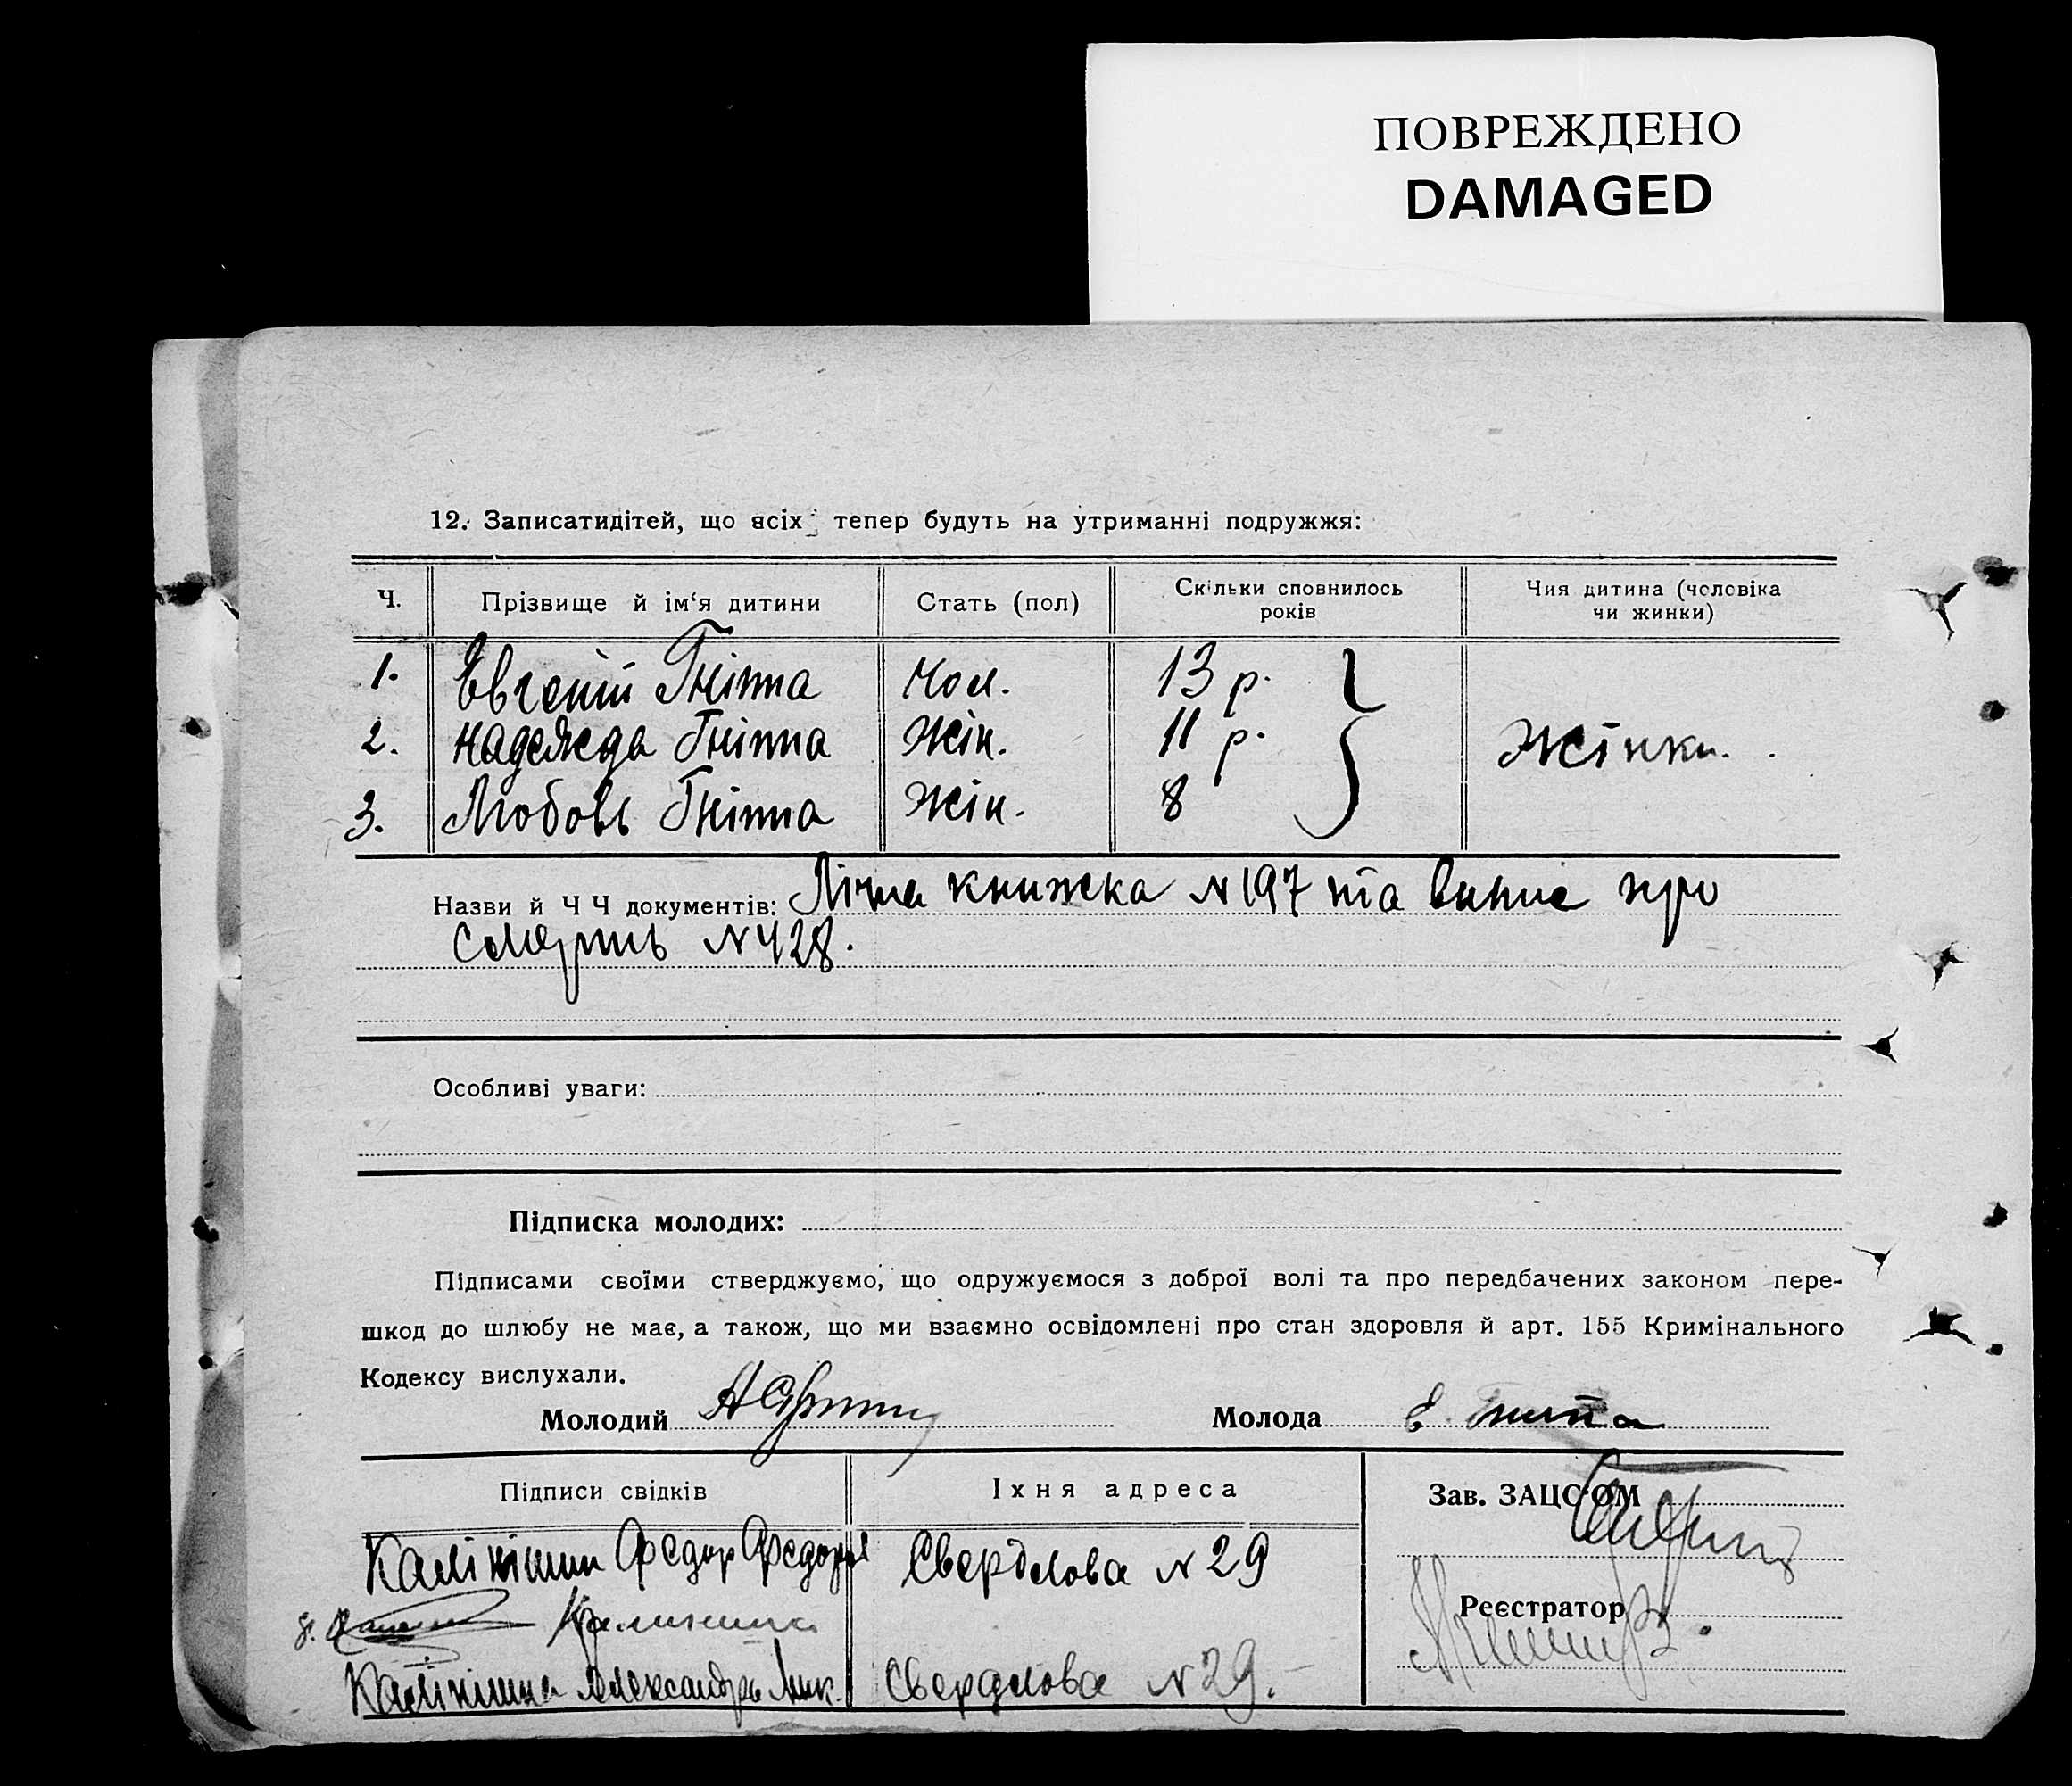 ПОВРЕЖДЕНО
DAMAGED
12. Записатидітей, що всіх тепер будуть на утриманні подружжя:
Ч. Прізвище й ім‘я дитини Стать (пол) Скільки сповнилось років Чия дитина (чоловіка чи жинки)
1. Євгеній Гніппа Чол. 13 р.
2. Надежда Гніппа Жін. 11 р. Жінки.
3. Любовь Гніппа Жін. 8
Назви й Ч Ч документів: Лічна книжка N 197 та випис про
смерть N 428.
Особливі уваги:
Підписка молодих:
Підписами своїми стверджуємо, що одружуємося з доброї волі та про передбачених законом пере-
шкод до шлюбу не має, а також, що ми взаємно освідомлені про стан здоровля й арт. 155 Кримінального
Кодексу вислухали.
Молодий Молода Е. Гниппа
Підписи свідків Їхня адреса Зав. ЗАЦС‘ОМ
Калінішин Федор Свердлова N 29
Реєстратор
Калінішина Александра Мик. Свердлова N 29.